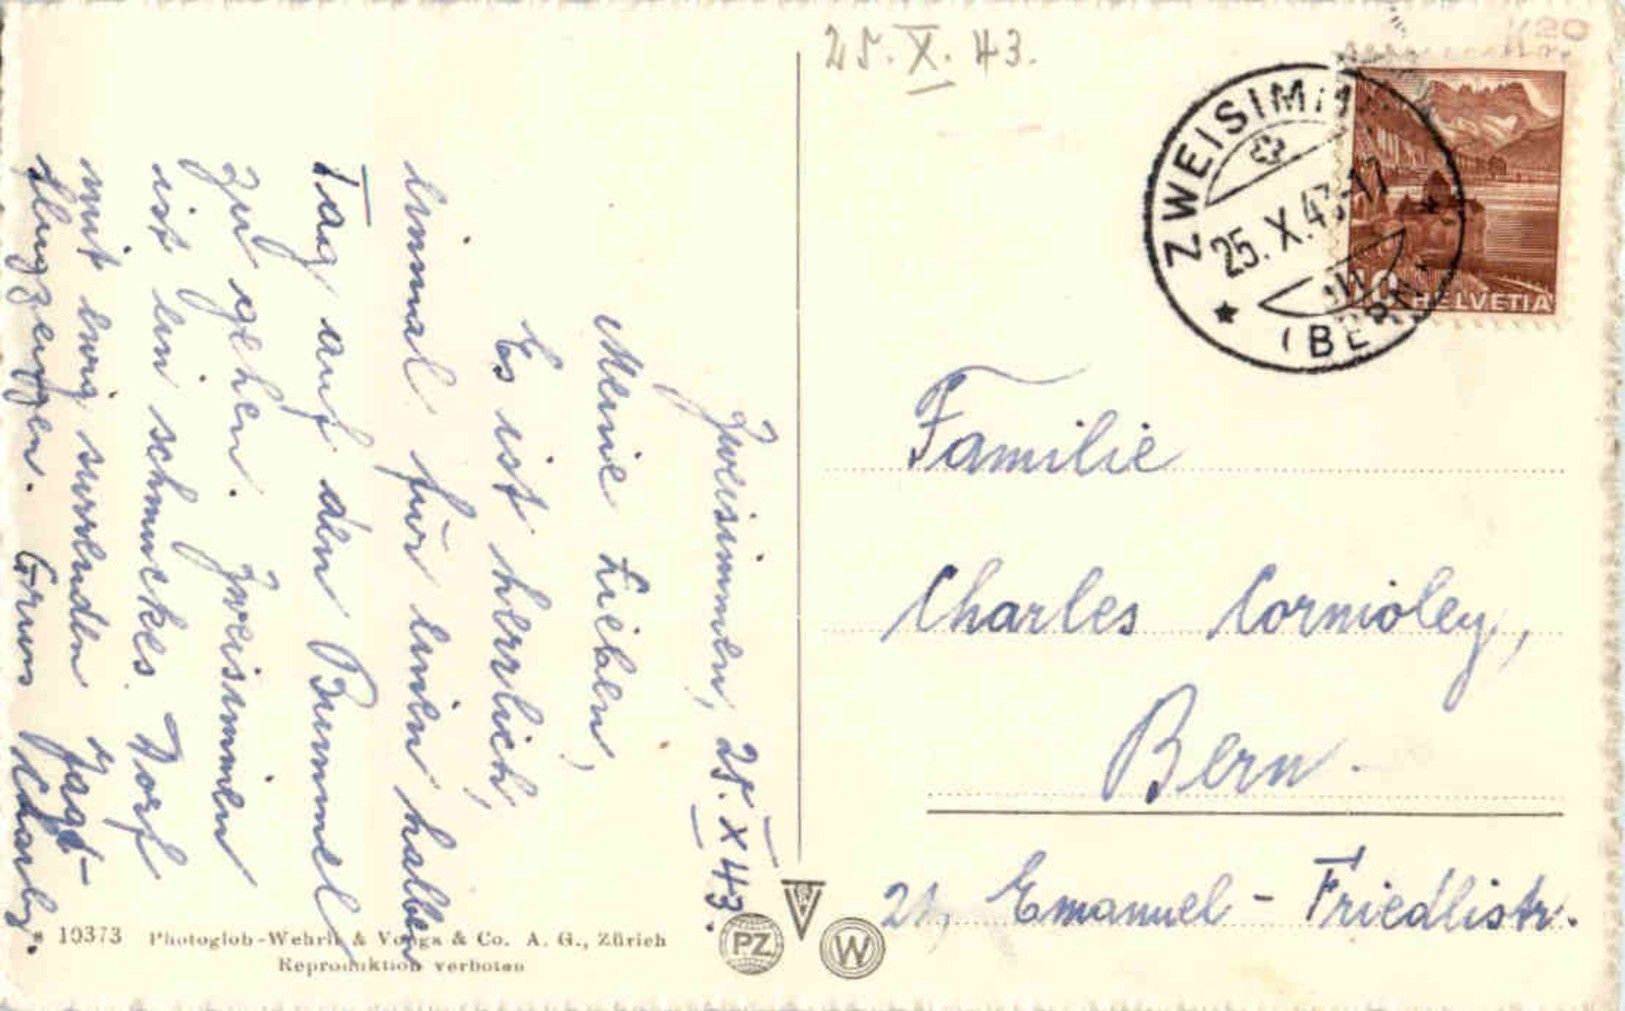 Zweisimmen, 25. X 43.
Meine Lieben,
Es ist herrlich,
einmal für einen halben
Tag auf den Bummel
zu gehen. Zweisimmen
ist ein schmuckes Dorf
mit ewig surrenden Jagd-
flugzeugen. Gruss Charly.
10373 Photoglob-Wehrli & Vouga & Co. A. G., Zürich
Reproduktion verboten
PZ
W
25. X. 43.
K20
ZWEISIMMEN
25. X. 43-17
(BERN)
10 HELVETIA
Familie
Charles Cornioley,
Bern.
21, Emanuel-Friedlistr.